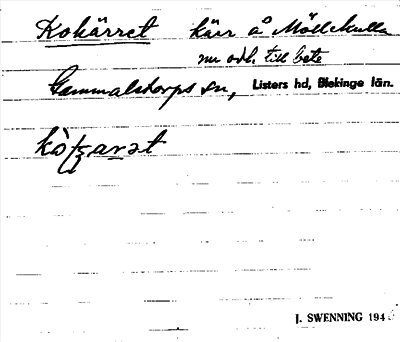 Kokärret kärr å Möllekulla
nu odl. till bete
Gammalstorps sn, Listers hd, Blekinge län.
J. SWENNING 194